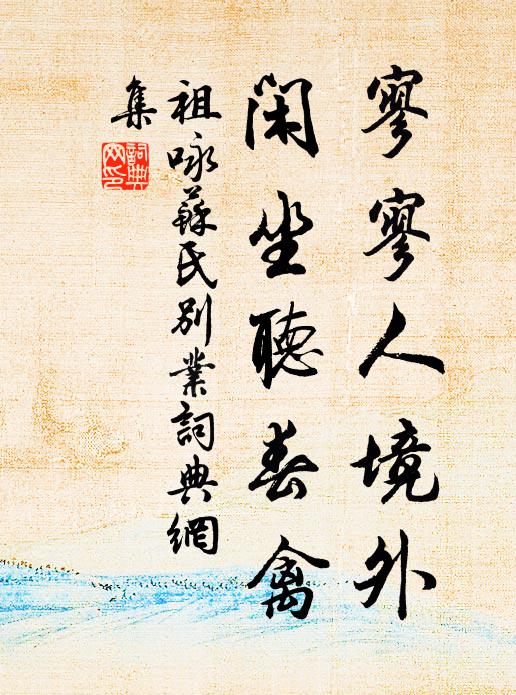 寥寥人境外
閑坐聽春禽
祖咏蘇氏別業詞典網
集
詞典
网印